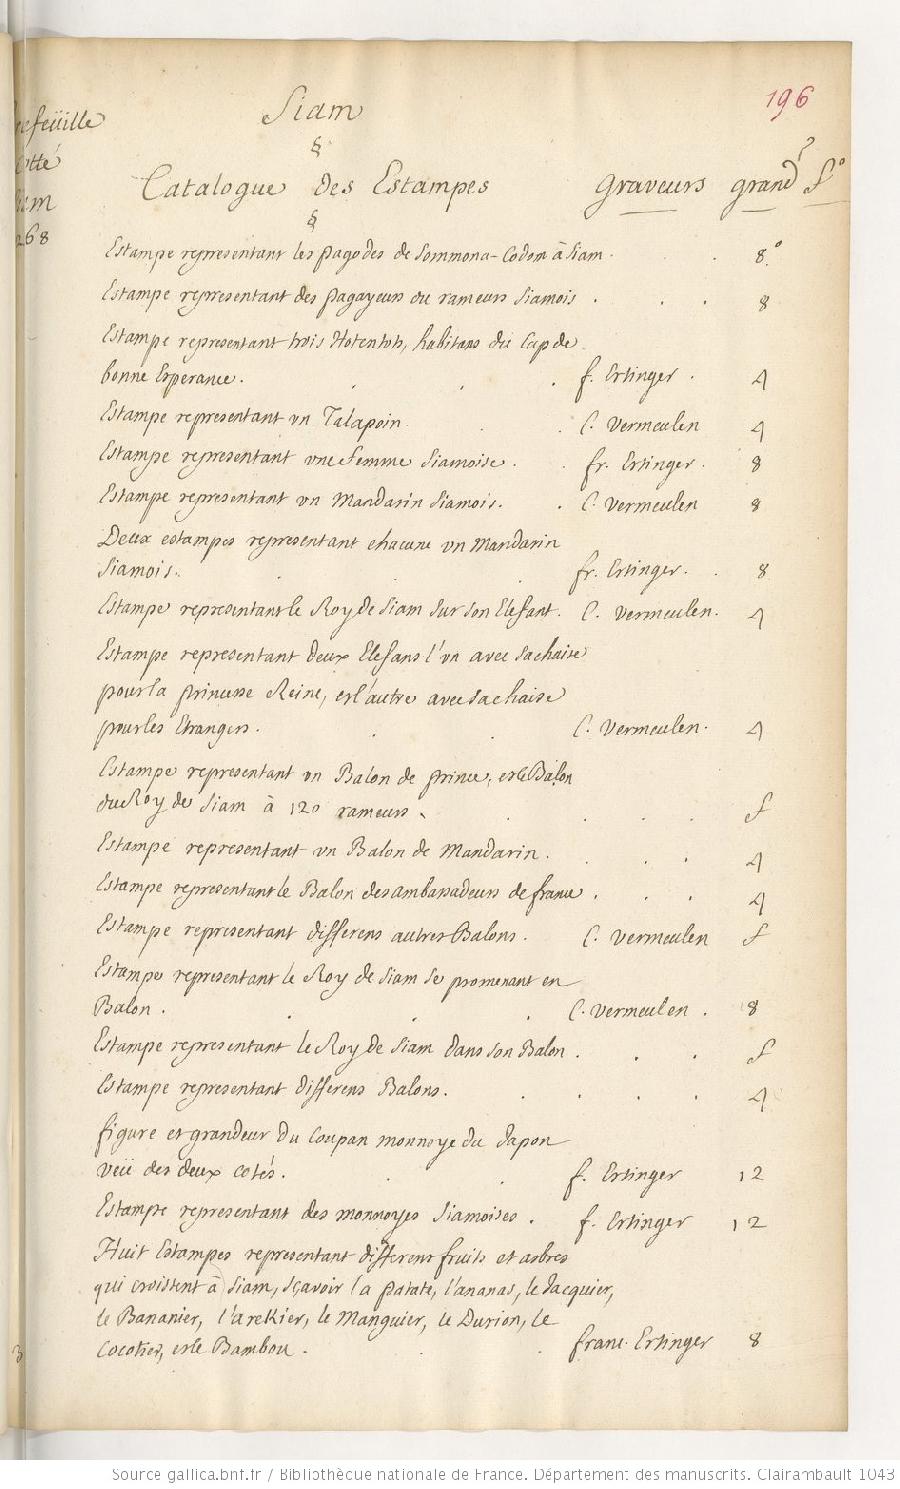 196
Siam
§
Catalogue des Estampes Graveurs grand.r f.o
§
efeüille
otté
iam
268
Estampe representant les pagodes de Sommona-Codom à Siam . . 8.o
Estampe representant des pagayeurs ou rameurs Siamois . . . 8
Estampe representant trois Hotentots, habitans du Cap de
bonne Esperance. . . . f. Ertinger . 4
Estampe representant un Talapoin . . C. Vermeulen 4
Estampe representant une femme Siamoise . . fr. Ertinger . 8
Estampe representant un Mandarin Siamois. . C. Vermeulen 8
Deux estampes representant chacune un Mandarin
Siamois. . . fr. Ertinger. . 8
Estampe representant le Roy de Siam sur son Elefant. C. Vermeulen. 4
Estampe representant deux Elefans l'un avec sa chaise
pour la princesse Reine, et l'autre avec sa chaise
pour les Etrangers. . . C. Vermeulen. 4
Estampe representant un Balon de prince, et le Balon
du Roy de Siam à 120 rameurs . . . . f
Estampe representant un Balon de Mandarin . . . . 4
Estampe representant le Balon des ambassadeurs de france . . . . 4
Estampe representant differens autres Balons . C. Vermeulen f
Estampe representant le Roy de Siam se promenant en
Balon . . . . C. Vermeulen . 8
Estampe representant le Roy de Siam dans son Balon . . . f
Estampe representant differens Balons. . . . . 4
figure et grandeur du Coupan monnoye du Japon
veüe des deux cotés. . . f. Ertinger 12
Estampe representant des monnoyes Siamoises . f. Ertinger 12
Huit Estampes representant differens fruits et arbres
qui croissent à Siam, sçavoir la patate, l'ananas, le Jacquier,
le Bananier, l'arekier, le Manguier, le Durion, le
Cocotier, et le Bambou . . . franc. Ertinger 8
3
Source gallica.bnf.fr / Bibliothèque nationale de France. Département des manuscrits. Clairambault 1043